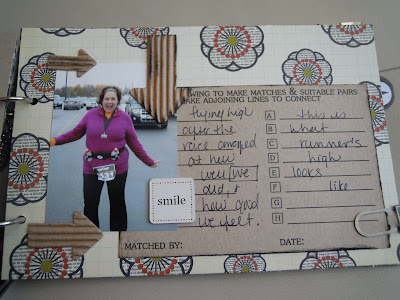 WING TO MAKE MATCHES & SUITABLE PAIRS
KE ADJOINING LINES TO CONNECT
flying high
after the
race amazed
at how
well we
did &
how good
we felt.
A this is
B what
C runner's
D high
E looks
F like
G
H
smile
MATCHED BY:
DATE: